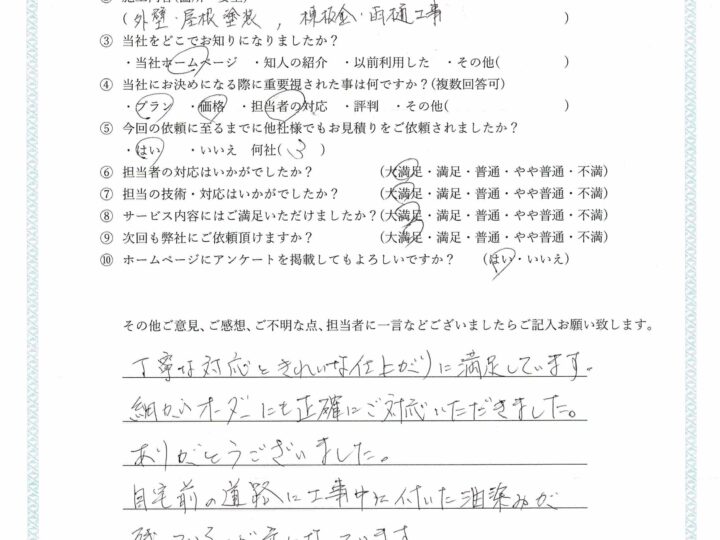 (外壁・屋根塗装, 棟板金・雨樋工事)
③ 当社をどこでお知りになりましたか?
・当社ホームページ ・知人の紹介 ・以前利用した ・その他( )
④ 当社にお決めになる際に重要視された事は何ですか?(複数回答可)
・プラン ・価格 ・担当者の対応 ・評判 ・その他( )
⑤ 今回の依頼に至るまでに他社様でもお見積りをご依頼されましたか?
・はい ・いいえ 何社( 3 )
⑥ 担当者の対応はいかがでしたか? (大満足・満足・普通・やや普通・不満)
⑦ 担当の技術・対応はいかがでしたか? (大満足・満足・普通・やや普通・不満)
⑧ サービス内容にはご満足いただけましたか?(大満足・満足・普通・やや普通・不満)
⑨ 次回も弊社にご依頼頂けますか? (大満足・満足・普通・やや普通・不満)
⑩ ホームページにアンケートを掲載してもよろしいですか? (はい・いいえ)
その他ご意見、ご感想、ご不明な点、担当者に一言などございましたらご記入お願い致します。
丁寧な対応ときれいな仕上がりに満足しています。
細かいオーダーにも正確にご対応いただきました。
ありがとうございました。
自宅前の道路に工事中に付いた油染みが